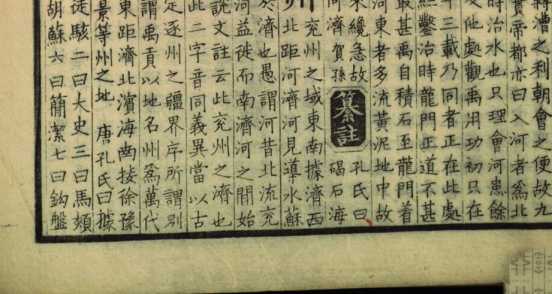 轉漕之利朝會之便故九
實帝都亦曰入河者為北
時治水也只理會河患餘
他處觀禹用功初只在
十三載乃同者正在此處
鑿治時龍門正道不甚
最甚禹自積石至龍門着
河東者多流黃泥地中故
急故
河濟賀孫
纂註
孔氏曰
碣石海
兗州之域東南據濟西
北距河濟河見導水蘇
於濟也愚謂河昔北流兗
河益徙而南濟河之間始
說文註云此兗州之濟也
此二字音同義異當以古
定逐州之疆界序所謂別
謂禹貢以地名州為萬代
東距濟北濱海南接徐豫
景等州之地 唐孔氏曰據
徒駭二曰大史三曰馬頰
胡蘇六曰簡潔七曰鈎盤